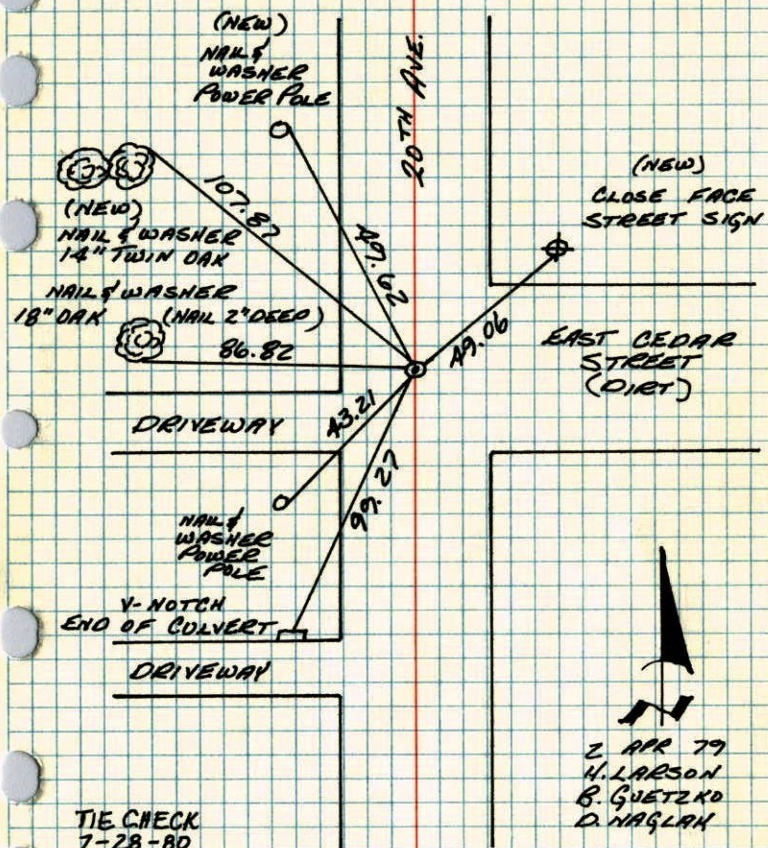 (NEW)
NAIL &
WASHER
POWER POLE
20TH AVE.
107.87
49.62
(NEW)
NAIL & WASHER
14" TWIN OAK
(NEW)
CLOSE FACE
STREET SIGN
NAIL & WASHER
18" OAK (NAIL 2" DEEP)
86.82
49.06
EAST CEDAR
STREET
(DIRT)
DRIVEWAY
43.21
99.27
NAIL &
WASHER
POWER
POLE
V-NOTCH
END OF CULVERT
DRIVEWAY
2 APR 79
H. LARSON
B. GUETZKO
D. NAGLAK
TIE CHECK
7-28-80